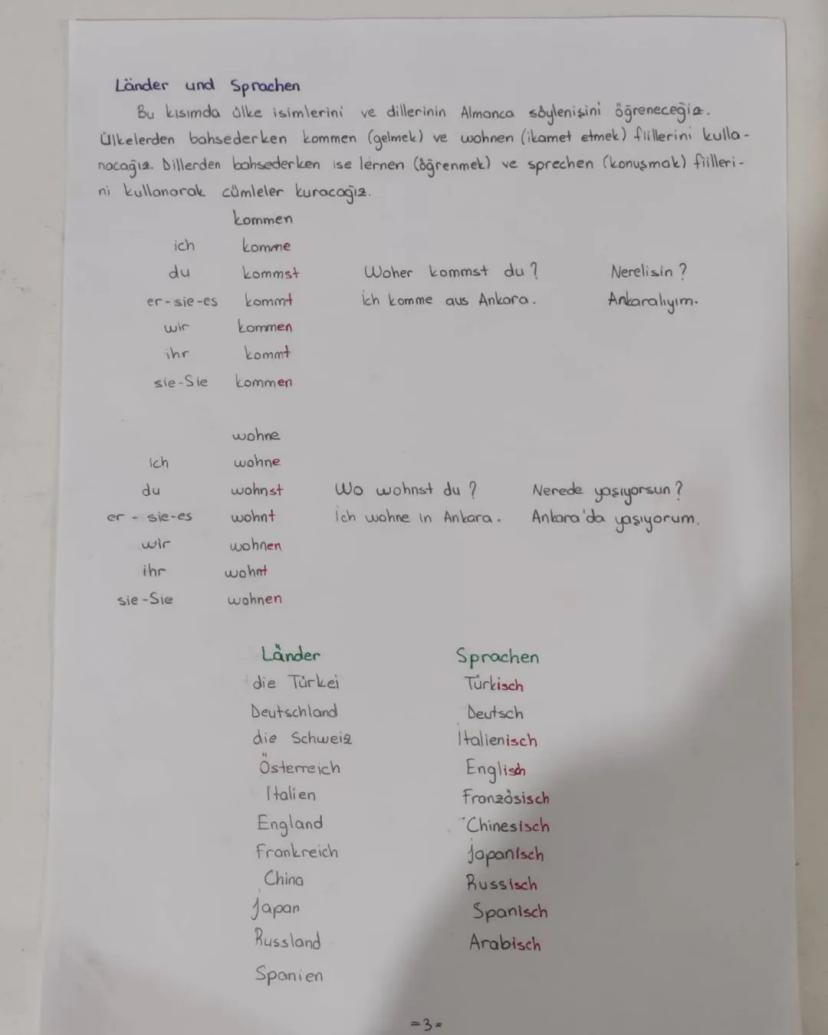 Länder und Sprachen
Bu kısımda ülke isimlerini ve dillerinin Almanca söylenişini öğreneceğiz.
Ülkelerden bahsederken kommen (gelmek) ve wohnen (ikamet etmek) fiillerini kulla-
nacağız. Dillerden bahsederken ise lernen (öğrenmek) ve sprechen (konuşmak) fiilleri-
ni kullanarak cümleler kuracağız.
kommen
ich komme
du kommst Woher kommst du? Nerelisin?
er-sie-es kommt ich komme aus Ankara. Ankaralıyım.
wir kommen
ihr kommt
sie-Sie kommen
wohne
ich wohne
du wohnst Wo wohnst du? Nerede yaşıyorsun?
er - sie-es wohnt ich wohne in Ankara. Ankara'da yaşıyorum.
wir wohnen
ihr wohnt
sie-Sie wohnen
Länder Sprachen
die Türkei Türkisch
Deutschland Deutsch
die Schweiz Italienisch
Österreich Englisch
Italien Französisch
England Chinesisch
Frankreich Japanisch
China Russisch
Japan Spanisch
Russland Arabisch
Spanien
=3=